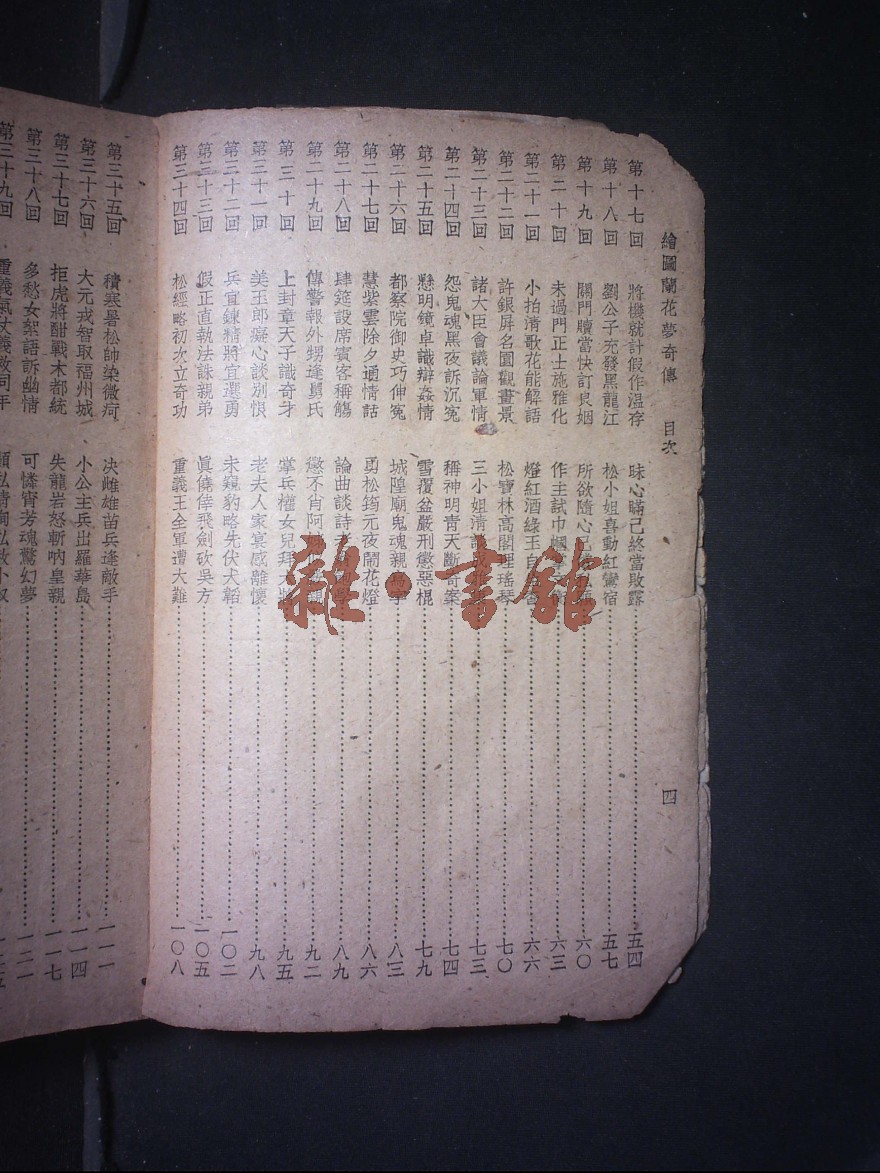 繪圖蘭花夢奇傳 目次 四
第十七回 將機就計假作温存 昧心瞞己終當敗露 五四
第十八回 劉公子充發黑龍江 松小姐喜動紅鸞宿 五七
第十九回 關門贖當快訂良姻 所欲隨心 六〇
第二十回 未過門正士施雅化 作主試巾幗 六三
第二十一回 小拍清歌花能解語 燈紅酒綠玉自 六六
第二十二回 許銀屏名園觀畫景 松寶林高閣理瑤琴 七〇
第二十三回 諸大臣會議論軍情 三小姐清談 七三
第二十四回 怨鬼魂黑夜訴沉寃 稱神明青天斷奇案 七四
第二十五回 懸明鏡卓識辯姦情 雪覆盆嚴刑懲惡棍 七九
第二十六回 都察院御史巧伸寃 城隍廟鬼魂親 八三
第二十七回 慧紫雲除夕通情話 勇松筠元夜鬧花燈 八六
第二十八回 肆筵設席賓客稱觴 論曲談詩 八九
第二十九回 傳警報外甥逢舅氏 懲不肖阿 九二
第三十回 上封章天子識奇才 掌兵權女兒拜 將 九五
第三十一回 美玉郎癡心談別恨 老夫人家宴感離懷 九八
第三十二回 兵宜鍊精將宜選勇 未窺豹略先伏犬韜 一〇二
第三十三回 假正直執法誅親弟 眞僥倖飛劍砍吳方 一〇五
第三十四回 松經略初次立奇功 重義王全軍遭大難 一〇八
第三十五回 積寒暑松帥染微疴 决雌雄苗兵逢敵手 一一一
第三十六回 大元戎智取福州城 小公主兵出羅華島 一一四
第三十七回 拒虎將酣戰木都統 失龍岩怒斬吶皇親 一一七
第三十八回 多愁女絮語訴幽情 可憐宵芳魂驚幻夢 一二一
第三十九回 重義氣仗義救同年
雜·書館